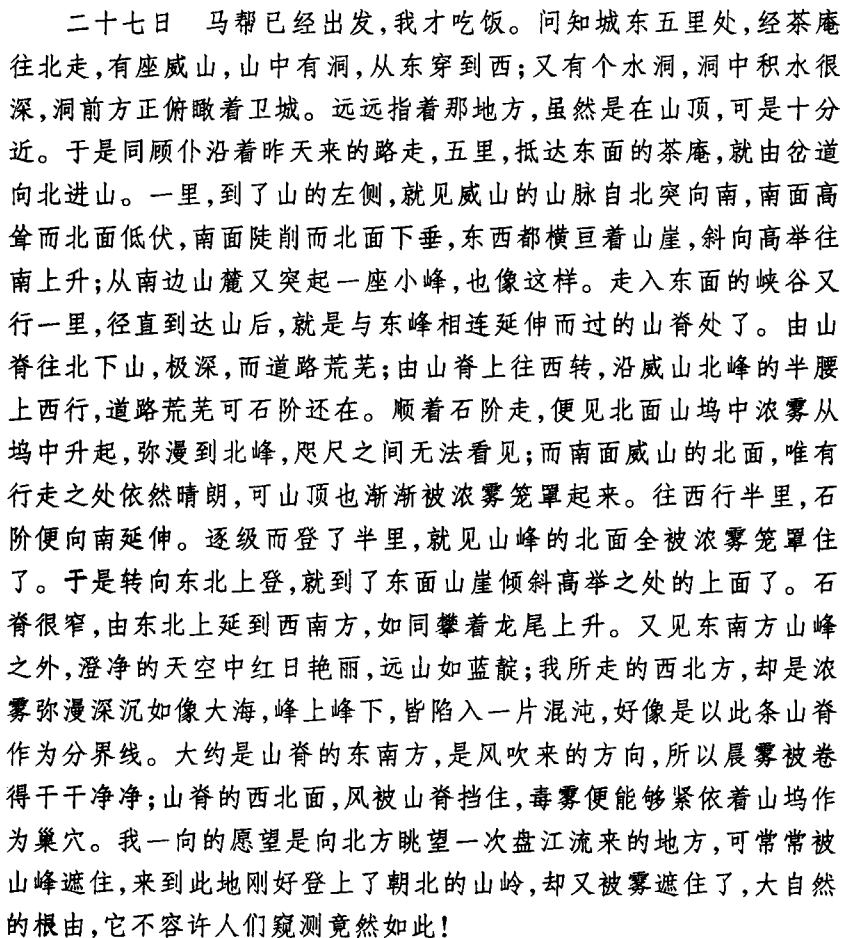 二十七日　马帮已经出发,我才吃饭。问知城东五里处,经茶庵
往北走,有座威山,山中有洞,从东穿到西;又有个水洞,洞中积水很
深,洞前方正俯瞰着卫城。远远指着那地方,虽然是在山顶,可是十分
近。于是同顾仆沿着昨天来的路走,五里,抵达东面的茶庵,就由岔道
向北进山。一里,到了山的左侧,就见威山的山脉自北突向南,南面高
耸而北面低伏,南面陡削而北面下垂,东西都横亘着山崖,斜向高举往
南上升;从南边山麓又突起一座小峰,也像这样。走入东面的峡谷又
行一里,径直到达山后,就是与东峰相连延伸而过的山脊处了。由山
脊往北下山,极深,而道路荒芜;由山脊上往西转,沿威山北峰的半腰
上西行,道路荒芜可石阶还在。顺着石阶走,便见北面山坞中浓雾从
坞中升起,弥漫到北峰,咫尺之间无法看见;而南面威山的北面,唯有
行走之处依然晴朗,可山顶也渐渐被浓雾笼罩起来。往西行半里,石
阶便向南延伸。逐级而登了半里,就见山峰的北面全被浓雾笼罩住
了。于是转向东北上登,就到了东面山崖倾斜高举之处的上面了。石
脊很窄,由东北上延到西南方,如同攀着龙尾上升。又见东南方山峰
之外,澄净的天空中红日艳丽,远山如蓝靛;我所走的西北方,却是浓
雾弥漫深沉如像大海,峰上峰下,皆陷入一片混沌,好像是以此条山脊
作为分界线。大约是山脊的东南方,是风吹来的方向,所以晨雾被卷
得干干净净;山脊的西北面,风被山脊挡住,毒雾便能够紧依着山坞作
为巢穴。我一向的愿望是向北方眺望一次盘江流来的地方,可常常被
山峰遮住,来到此地刚好登上了朝北的山岭,却又被雾遮住了,大自然
的根由,它不容许人们窥测竟然如此!